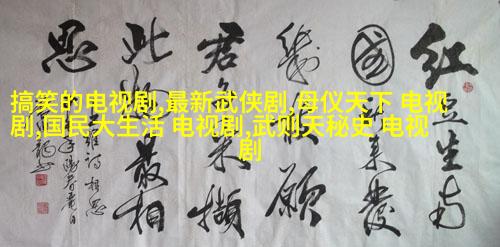 红豆生南
國春来發
幾枝願
君多采撷
此物最相
思
王维诗相思
搞笑的电视剧,最新武侠剧,母仪天下 电视
剧,国民大生活 电视剧,武则天秘史 电视
剧